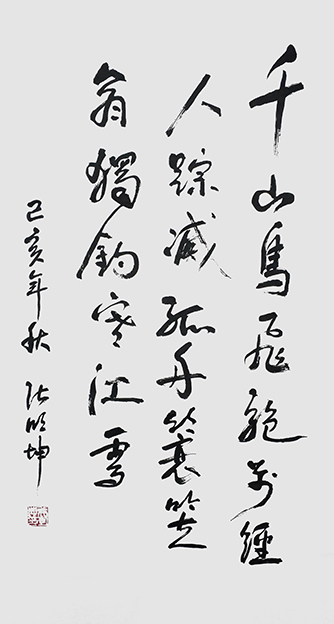 千山鳥飛絕万經
人踪滅孤舟蓑笠
翁獨釣寒江雪
己亥年秋 张明坤